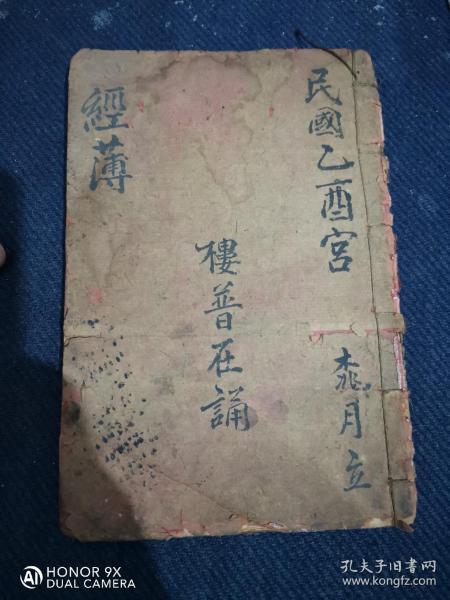 民國乙酉宮 桃月立
樓普在誦
經薄
HONOR 9X
DUAL CAMERA
孔夫子旧书网
www.kongfz.com